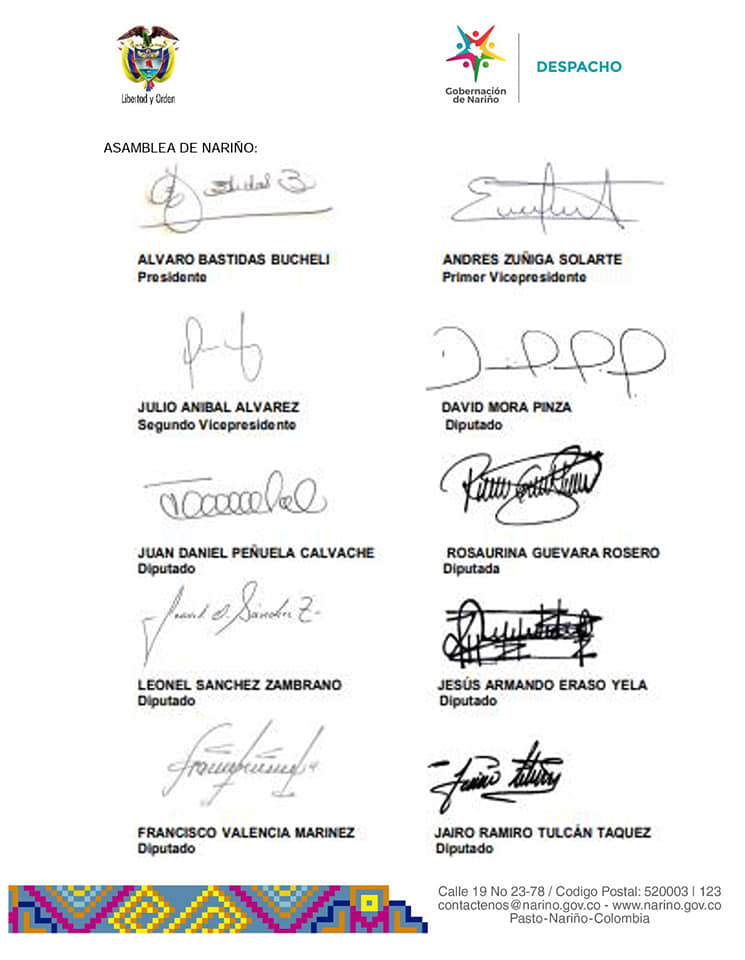 Libertad y Orden
Gobernación
de Nariño
DESPACHO
ASAMBLEA DE NARIÑO:
ALVARO BASTIDAS BUCHELI
Presidente
ANDRES ZUÑIGA SOLARTE
Primer Vicepresidente
JULIO ANIBAL ALVAREZ
Segundo Vicepresidente
DAVID MORA PINZA
Diputado
JUAN DANIEL PEÑUELA CALVACHE
Diputado
ROSAURINA GUEVARA ROSERO
Diputada
LEONEL SANCHEZ ZAMBRANO
Diputado
JESÚS ARMANDO ERASO YELA
Diputado
FRANCISCO VALENCIA MARINEZ
Diputado
JAIRO RAMIRO TULCÁN TAQUEZ
Diputado
Calle 19 No 23-78 / Codigo Postal: 520003 | 123
contactenos@narino.gov.co - www.narino.gov.co
Pasto-Nariño-Colombia